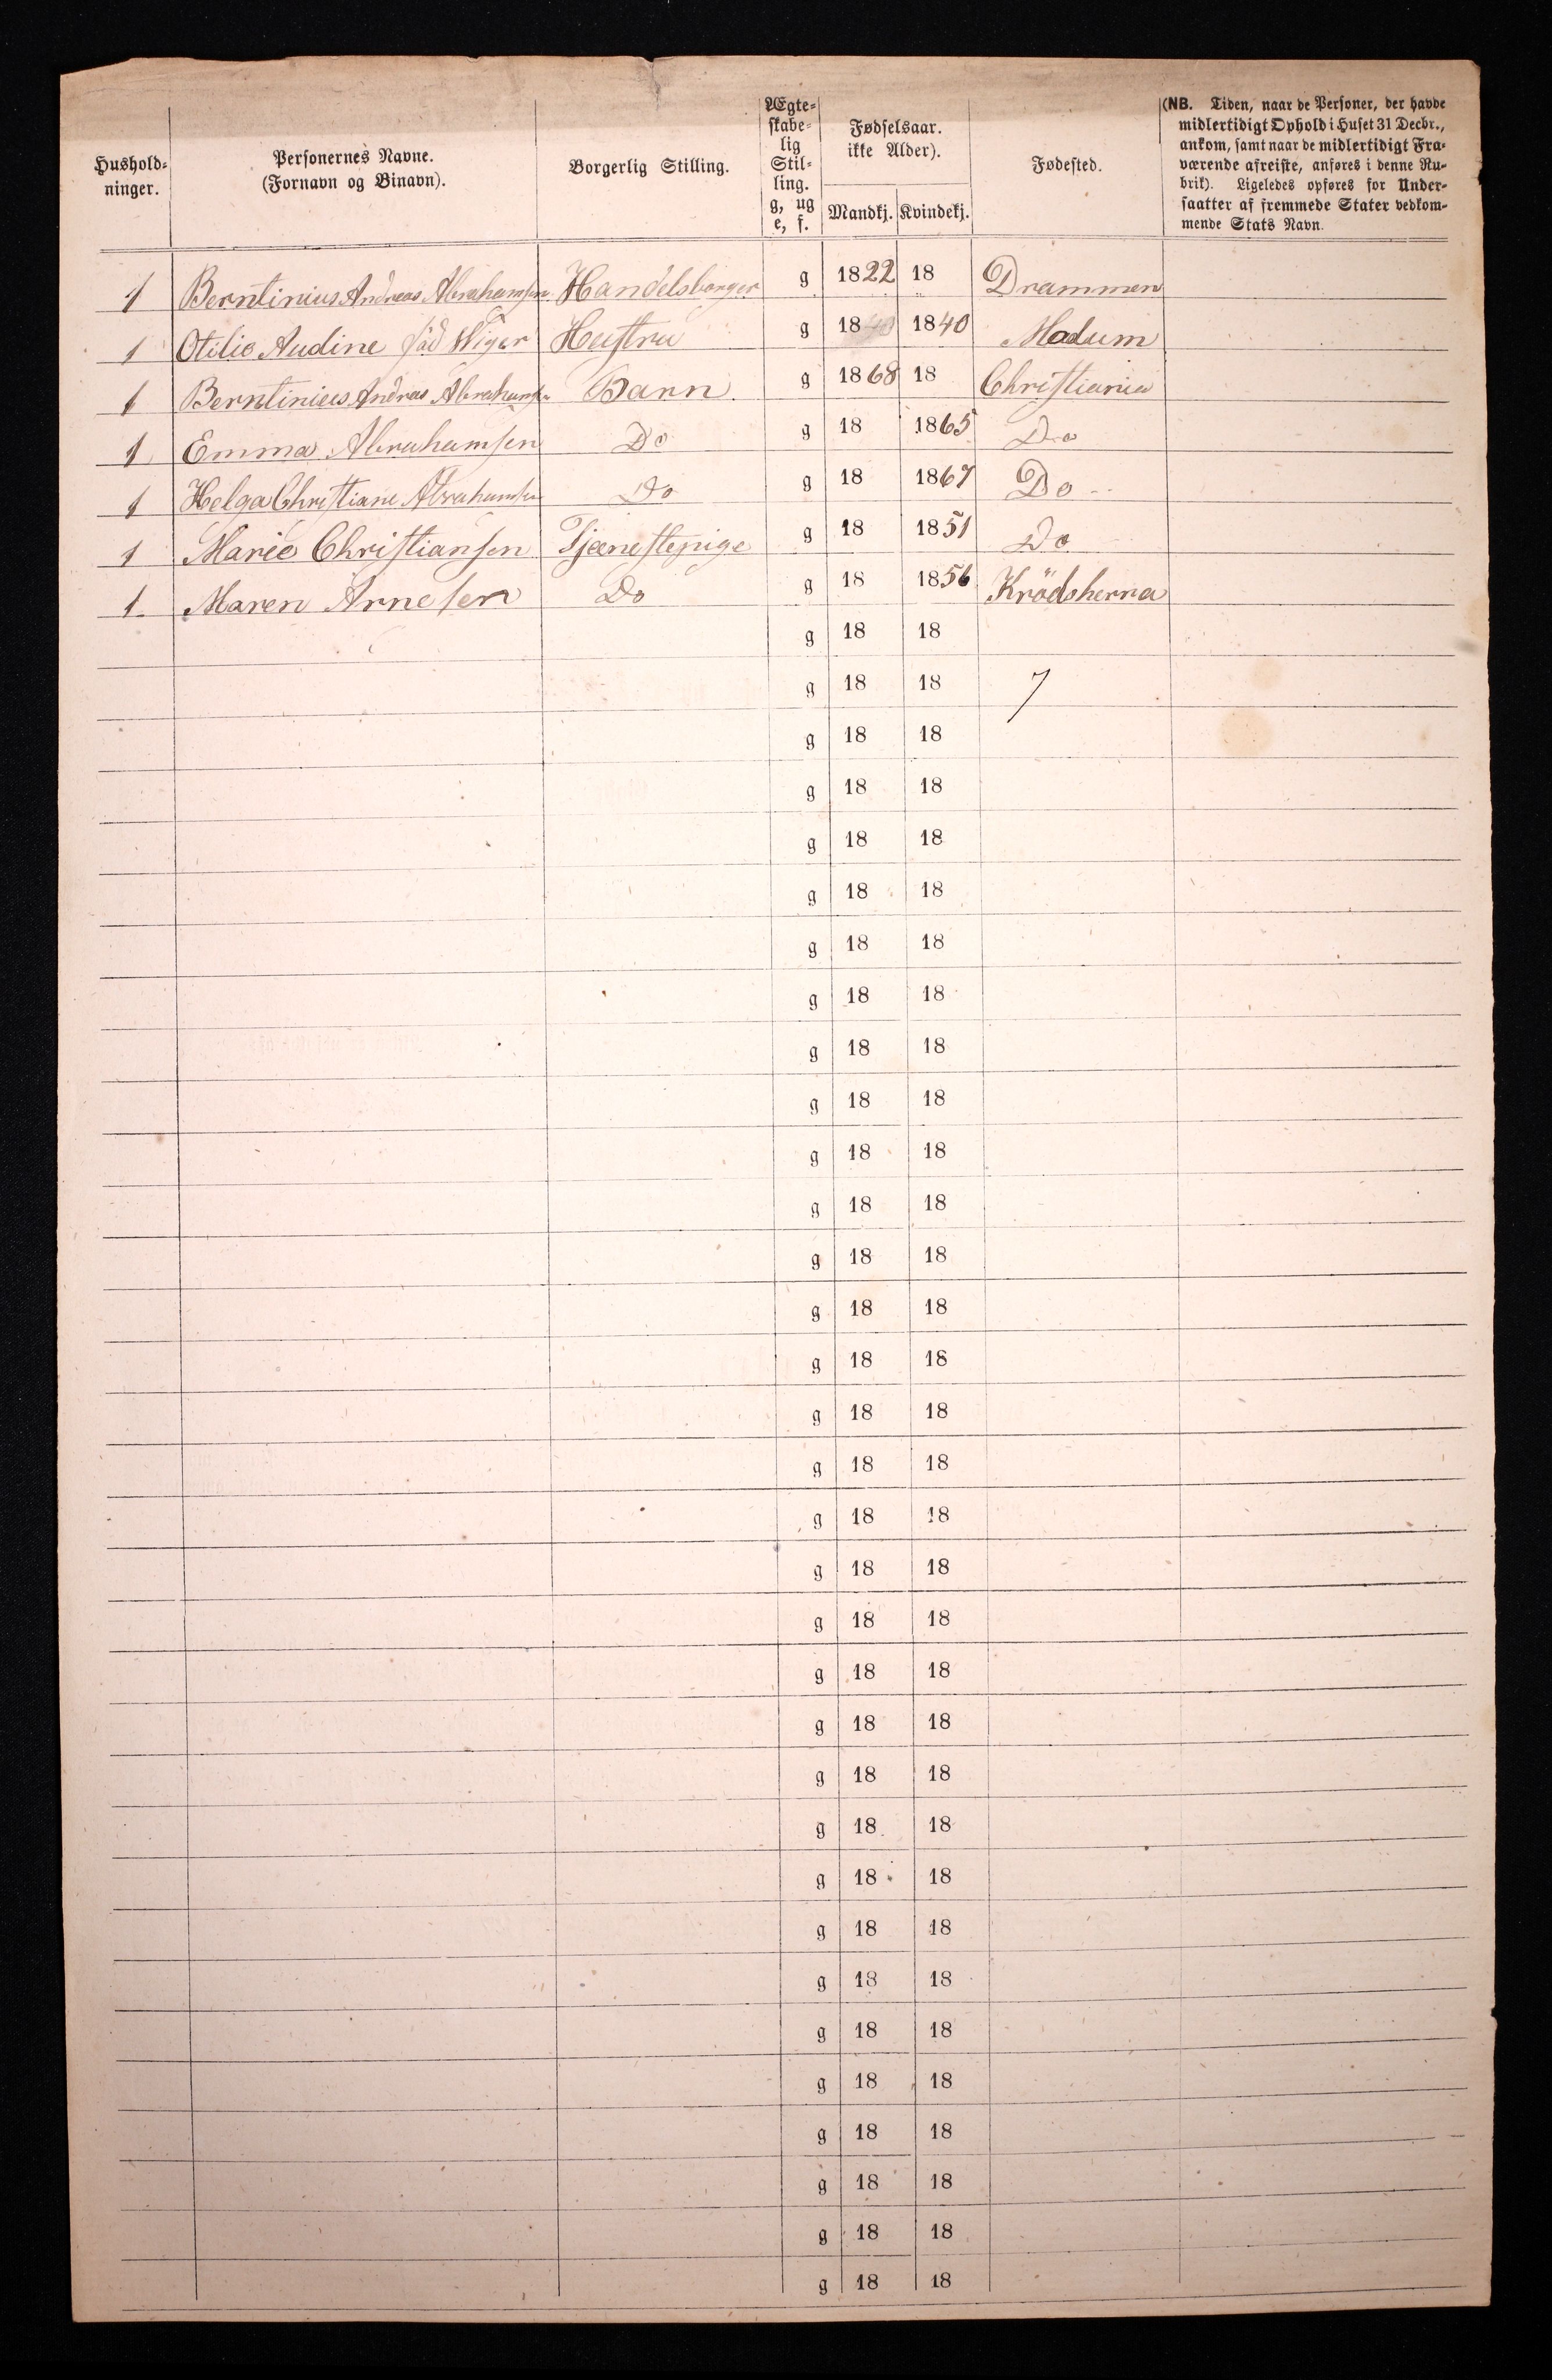 Hushold-
ninger.
Personernes Navne.
(Fornavn og Binavn).
Borgerlig Stilling.
Ægte-
skabe-
lig
Stil-
ling.
g, ug
e, f.
Fødselsaar.
ikke Alder).
Mandkj. Kvindekj.
Fødested.
(NB. Tiden, naar de Personer, der havde
midlertidigt Ophold i Huset 31 Decbr.,
ankom, samt naar de midlertidigt Fra-
værende afreiste, anføres i denne Ru-
brik). Ligeledes opføres for Under-
saatter af fremmede Stater vedkom-
mende Stats Navn.
1 Berntinius Andreas Abrahamsen Handelsborger g 1822 18 Drammen
1 Otilie Audine föd Wiger Hustru g 1840 1840 Modum
1 Berntinius Andreas Abrahamsen Barn. g 1868 18 Christiania
1 Emma Abrahamsen Do g 18 1865 Do
1 Helga Christiane Abrahamsen Do g 18 1867 Do
1 Marie Christiansen Tjenestepige g 18 1851 Do
1. Maren Arnesen Do g 18 1856 Krödsherna
g 18 18
g 18 18 7
g 18 18
g 18 18
g 18 18
g 18 18
g 18 18
g 18 18
g 18 18
g 18 18
g 18 18
g 18 18
g 18 18
g 18 18
g 18 18
g 18 18
g 18 18
g 18 18
g 18 18
g 18 18
g 18 18
g 18 18
g 18 18
g 18 18
g 18 18
g 18 18
g 18 18
g 18 18
g 18 18
g 18 18
g 18 18
g 18 18
g 18 18